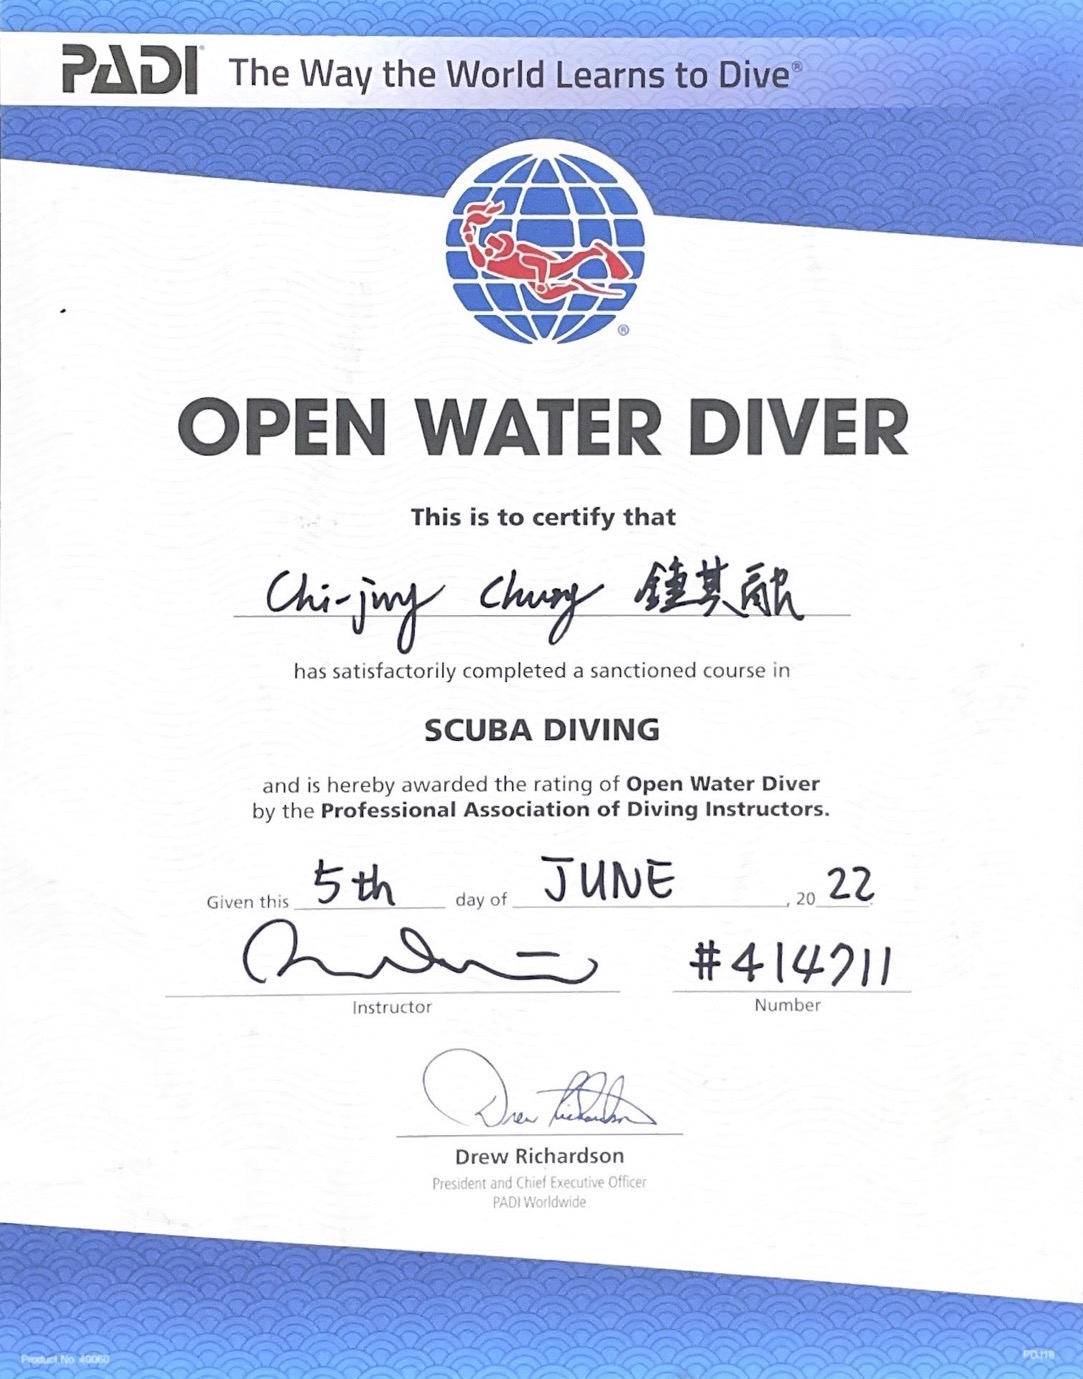 PADI® The Way the World Learns to Dive®
®
OPEN WATER DIVER
This is to certify that
Chi-jung Chung 鍾其融
has satisfactorily completed a sanctioned course in
SCUBA DIVING
and is hereby awarded the rating of Open Water Diver
by the Professional Association of Diving Instructors.
Given this 5th day of JUNE, 2022
#414711
Instructor Number
Drew Richardson
Drew Richardson
President and Chief Executive Officer
PADI Worldwide
Product No. 40060 PDJ18